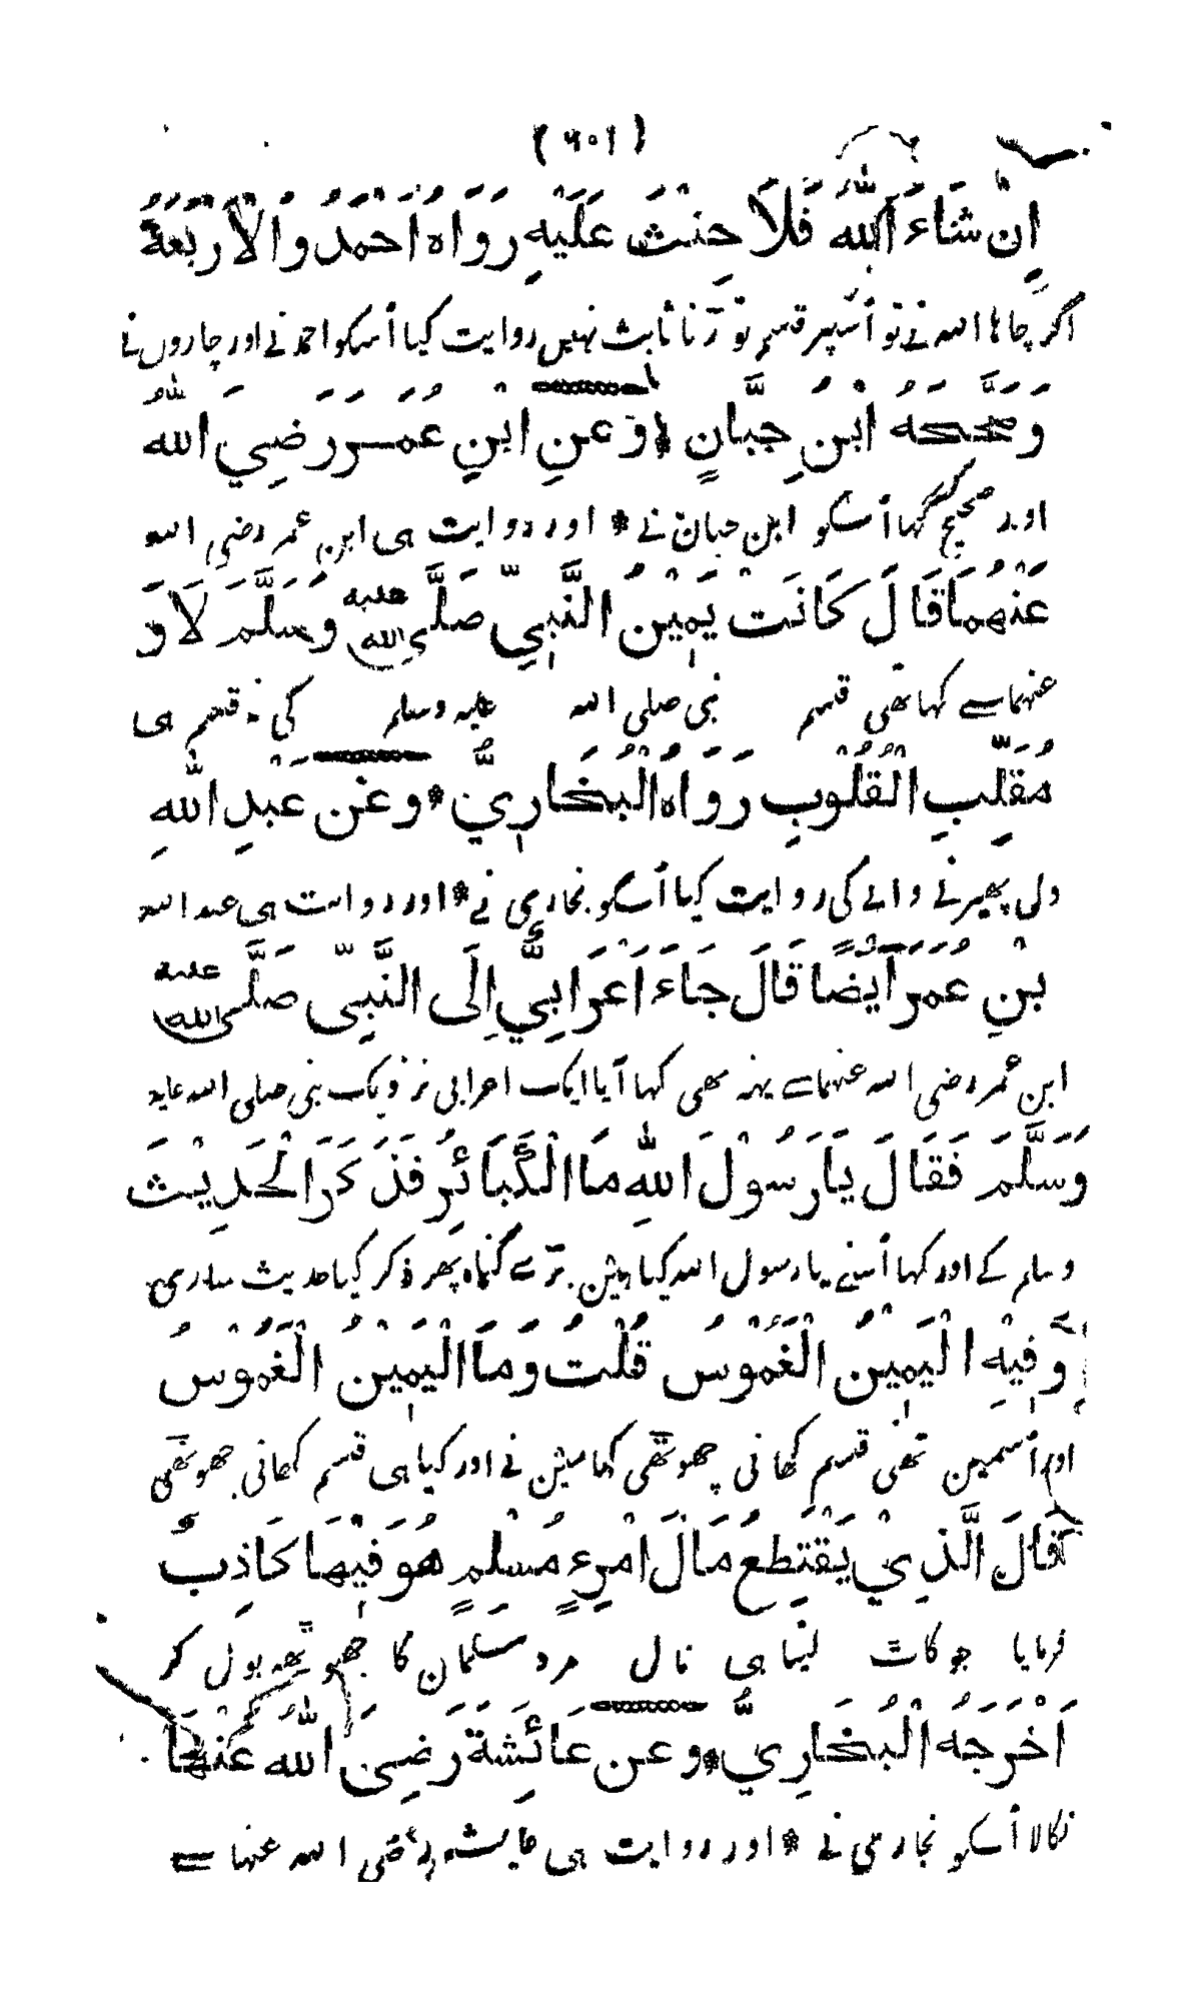 (٦٠١)
اِنْ شَاءَ اللّٰهُ فَلَا حِنْثَ عَلَيْهِ رَوَاهُ اَحْمَدُ وَالْاَرْبَعَةُ
اگر چاہا اللہ نے تو اُسپر قسم توڑنا ثابت نہیں روایت کیا اُسکو احمد نے اور چاروں نے
وَصَحَّحَهُ ابْنُ حِبَّانٍ * وَعَنِ ابْنِ عُمَرَ رَضِيَ اللّٰهُ
اور صحیح کہا اُسکو ابن حبان نے * اور روایت ہی ابن عمر رضی اللہ
عَنْهُمَا قَالَ كَانَتْ يَمِيْنُ النَّبِيِّ صَلَّى اللّٰهُ عليه وَسَلَّمَ لَا وَ
عنہما سے کہا تھی قسم نبی صلی اللہ علیہ وسلم کی نہ قسم ہی
مُقَلِّبِ الْقُلُوْبِ رَوَاهُ الْبُخَارِيُّ * وَعَنْ عَبْدِ اللّٰهِ
دل پھیرنے والے کی روایت کیا اُسکو بخاری نے * اور روایت ہی عبد اللہ
بْنِ عُمَرَ اَيْضًا قَالَ جَاءَ اَعْرَابِيٌّ اِلَى النَّبِيِّ صَلَّى اللّٰهُ عليه
ابن عمر رضی اللہ عنہما سے یہہ بھی کہا آیا ایک اعرابی نزدیک نبی صلی اللہ علیہ
وَسَلَّمَ فَقَالَ يَا رَسُوْلَ اللّٰهِ مَا الْكَبَائِرُ فَذَكَرَ الْحَدِيْثَ
وسلم کے اور کہا اُسنے یا رسول اللہ کیا ہیں بڑے گناہ پھر ذکر کیا حدیث ساری
وَفِيْهِ الْيَمِيْنُ الْغَمُوْسُ قُلْتُ وَمَا الْيَمِيْنُ الْغَمُوْسُ
اور اُسمین تھی قسم کھانی جھوٹھی کہا مین نے اور کیا ہی قسم کھانی جھوٹھی
قَالَ الَّذِيْ يَقْتَطِعُ مَالَ امْرِءٍ مُسْلِمٍ هُوَ فِيْهَا كَاذِبٌ
فرمایا جو کاٹ لیتا ہی مال مرد مسلمان کا جھوٹھہ بول کر
اَخْرَجَهُ الْبُخَارِيُّ * وعن عَائِشَةَ رَضِيَ اللّٰهُ عَنْهَا
نکالا اُسکو بخاری نے * اور روایت ہی عایشہ رضی اللہ عنہا سے